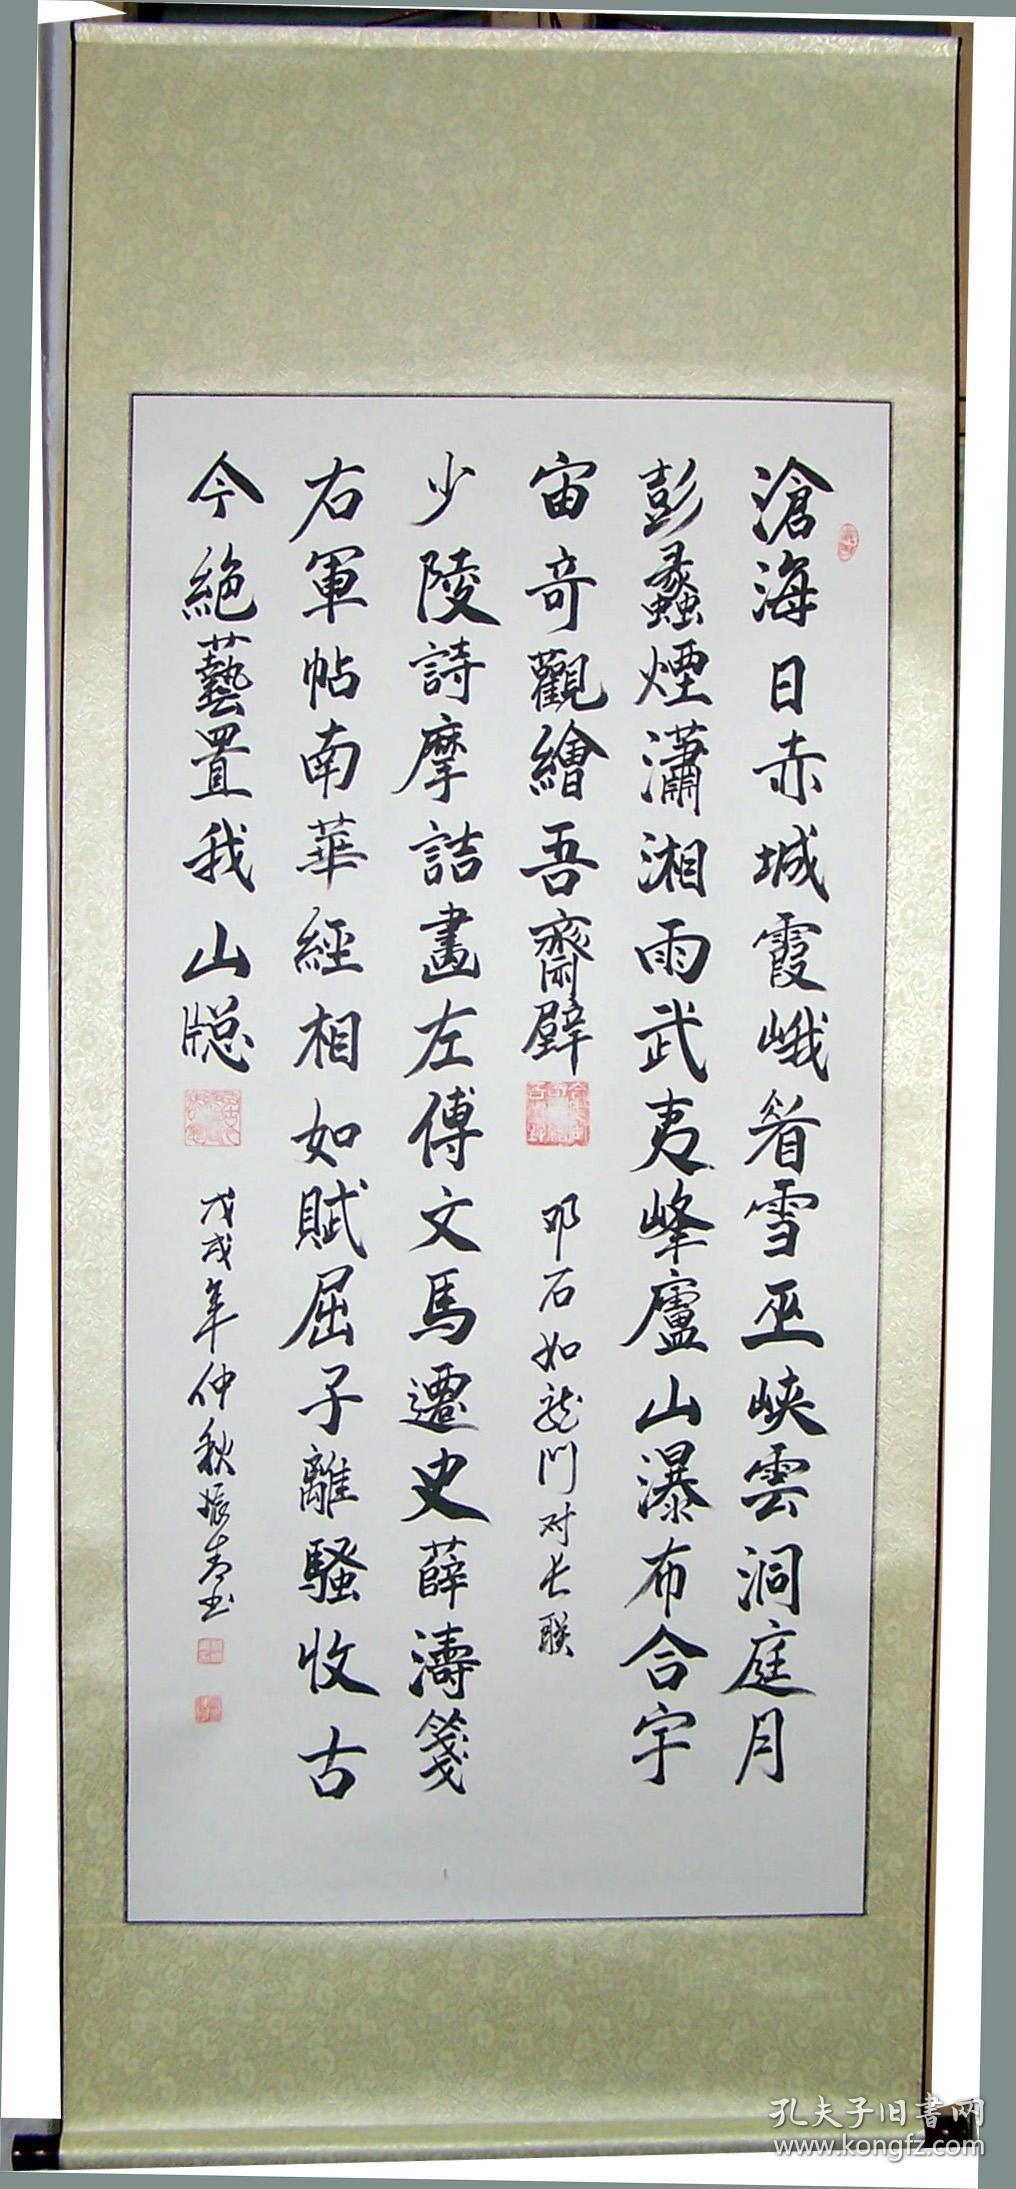 滄海日赤城霞峨眉雪巫峽雲洞庭月
彭蠡煙瀟湘雨武夷峰廬山瀑布合宇
宙奇觀繪吾齋壁
邓石如龙门对长联
少陵詩摩詰畫左傳文馬遷史薛濤箋
右軍帖南華經相如賦屈子離騷收古
今絕藝置我山牕
戊戌年仲秋振寿书
孔夫子旧書网
www.kongfz.com